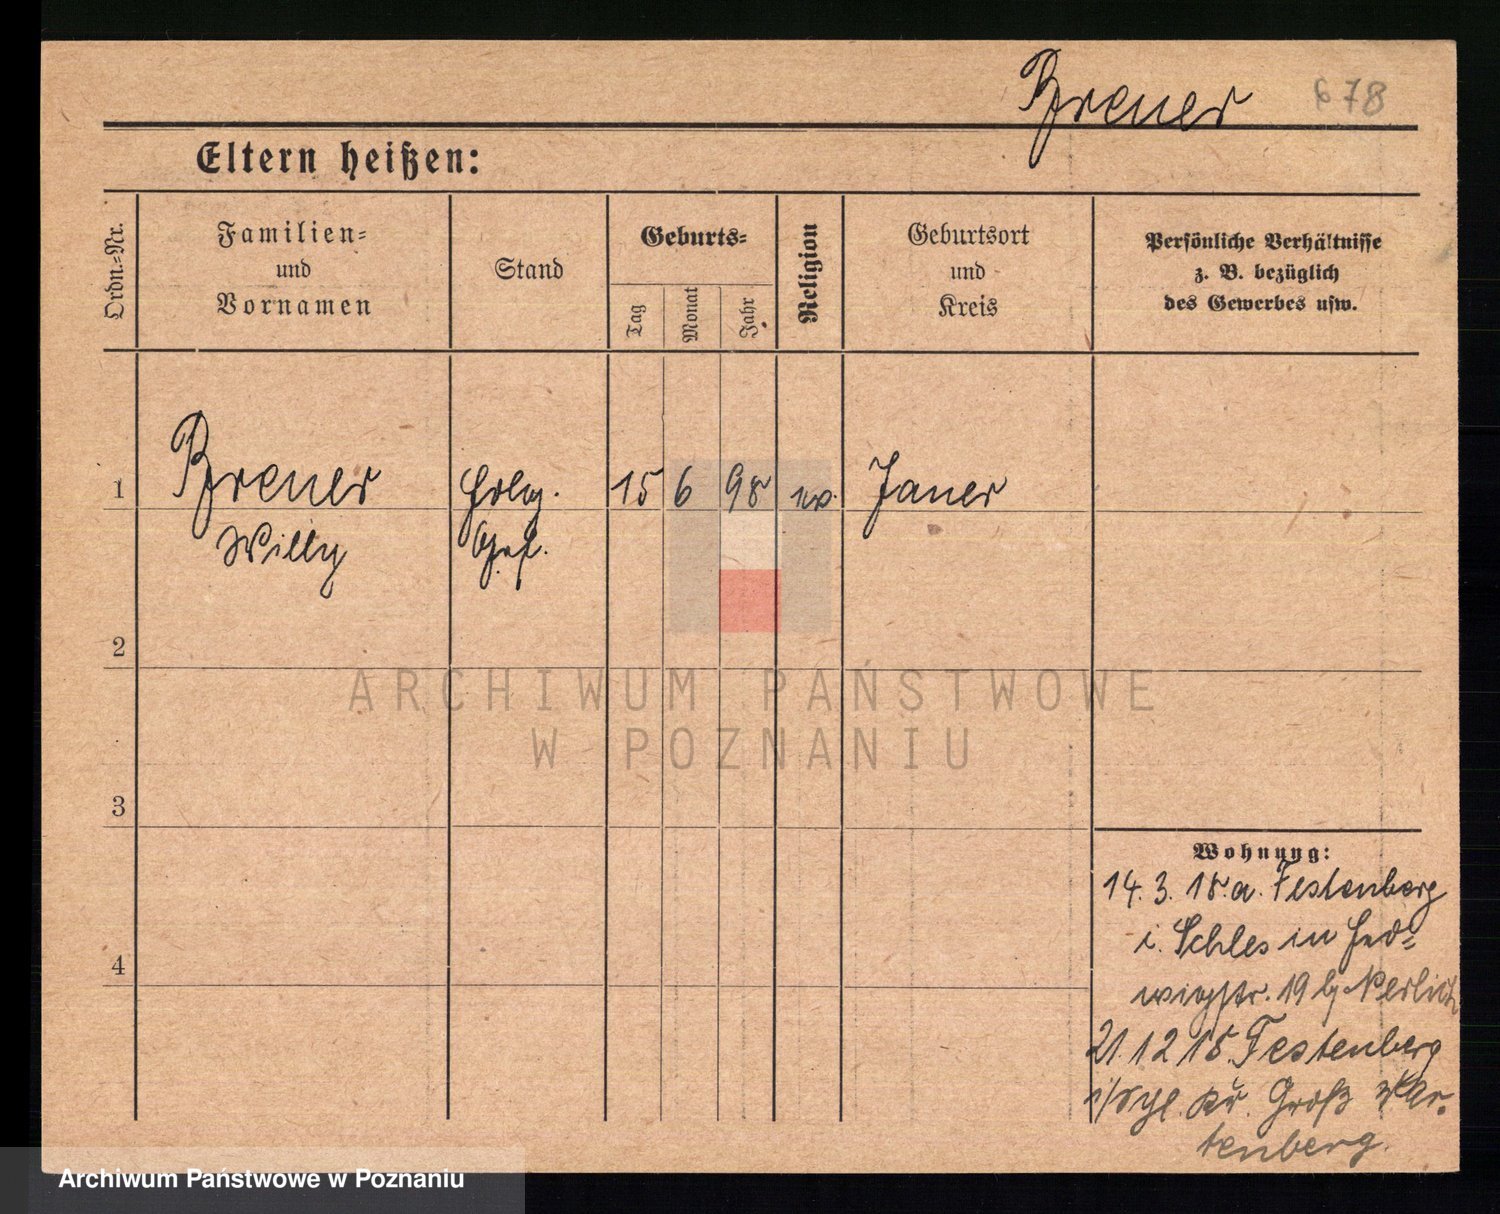 Brener 678
Eltern heißen:
Ordn.-Nr.
Familien-
und
Vornamen
Stand
Geburts-
Tag
Monat
Jahr
Religion
Geburtsort
und
Kreis
Persönliche Verhältnisse
z. B. bezüglich
des Gewerbes usw.
1 Brener 15 6 98 ev. Janer
Willy
2
ARCHIWUM PAŃSTWOWE
W POZNANIU
3
4
Wohnung:
14. 3. 18. a. Festenberg
i. Schles in Hed-
wigstr. 19 b/
21. 12 18. Festenberg
i/Schl. Kr. Groß War-
tenberg.
Archiwum Państwowe w Poznaniu